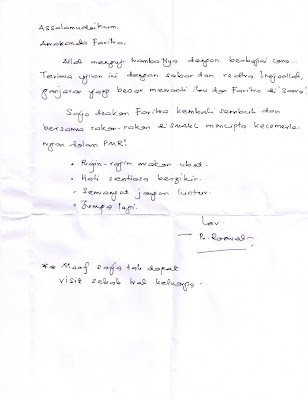 Assalamualaikum.
Anakanda Faritra.
Allah menguji hambaNya dengan berbagai cara...
Terima ujian ini dengan sabar dan redha. Insyaallah,
ganjaran yang besar menanti ibu dan Faritra di sana!
Saya doakan Faritra kembali sembuh dan
bersama rakan-rakan di mencipta kecemerla-
ngan dalam PMR!
• Rajin-rajin makan ubat.
• Hati sentiasa berzikir.
• Semangat jangan luntur.
• Jumpa lagi.
Lov
** Maaf saya tak dapat
visit sebab hal keluarga.